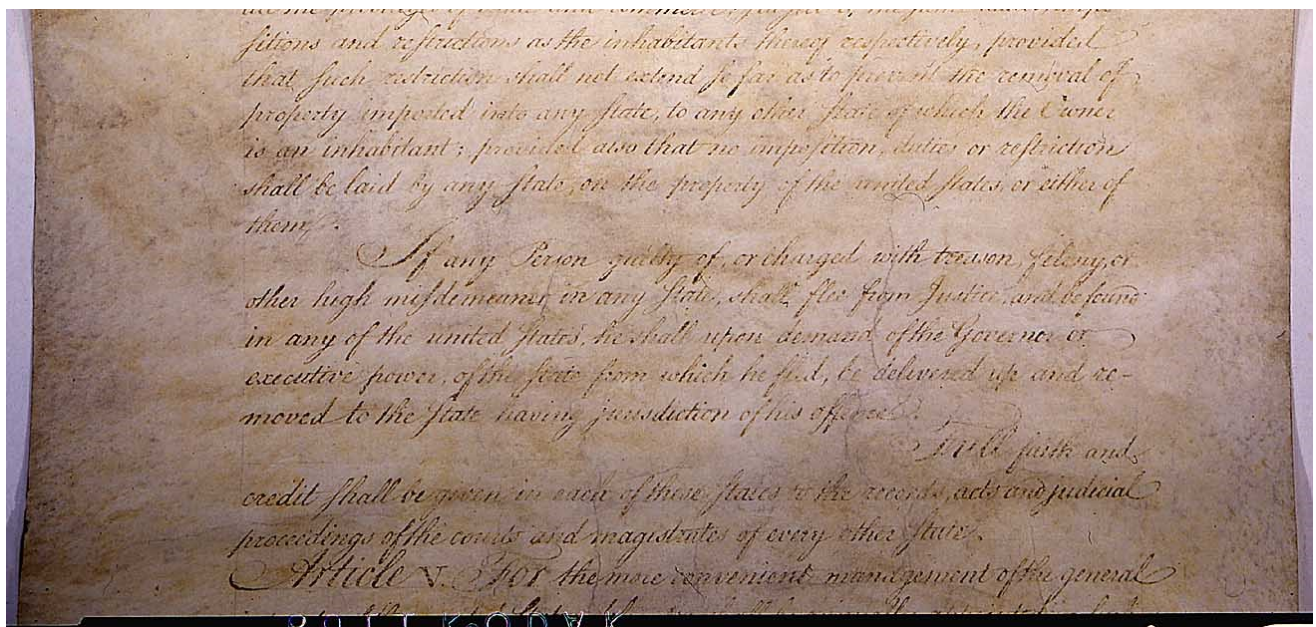 all the privileges of trade and commerce, subject to the same duties impo-
sitions and restrictions as the inhabitants thereof respectively, provided
that such restriction shall not extend so far as to prevent the removal of
property imported into any state, to any other state of which the Owner
is an inhabitant; provided also that no imposition, duties or restriction
shall be laid by any state, on the property of the united states, or either of
them.
If any Person guilty of, or charged with treason, felony, or
other high misdemeanor in any state, shall flee from Justice, and be found
in any of the united states, he shall upon demand of the Governor or
executive power, of the state from which he fled, be delivered up and re-
moved to the state having jurisdiction of his offence.
Full faith and
credit shall be given in each of these states to the records, acts and judicial
proceedings of the courts and magistrates of every other state.
Article V. For the more convenient management of the general